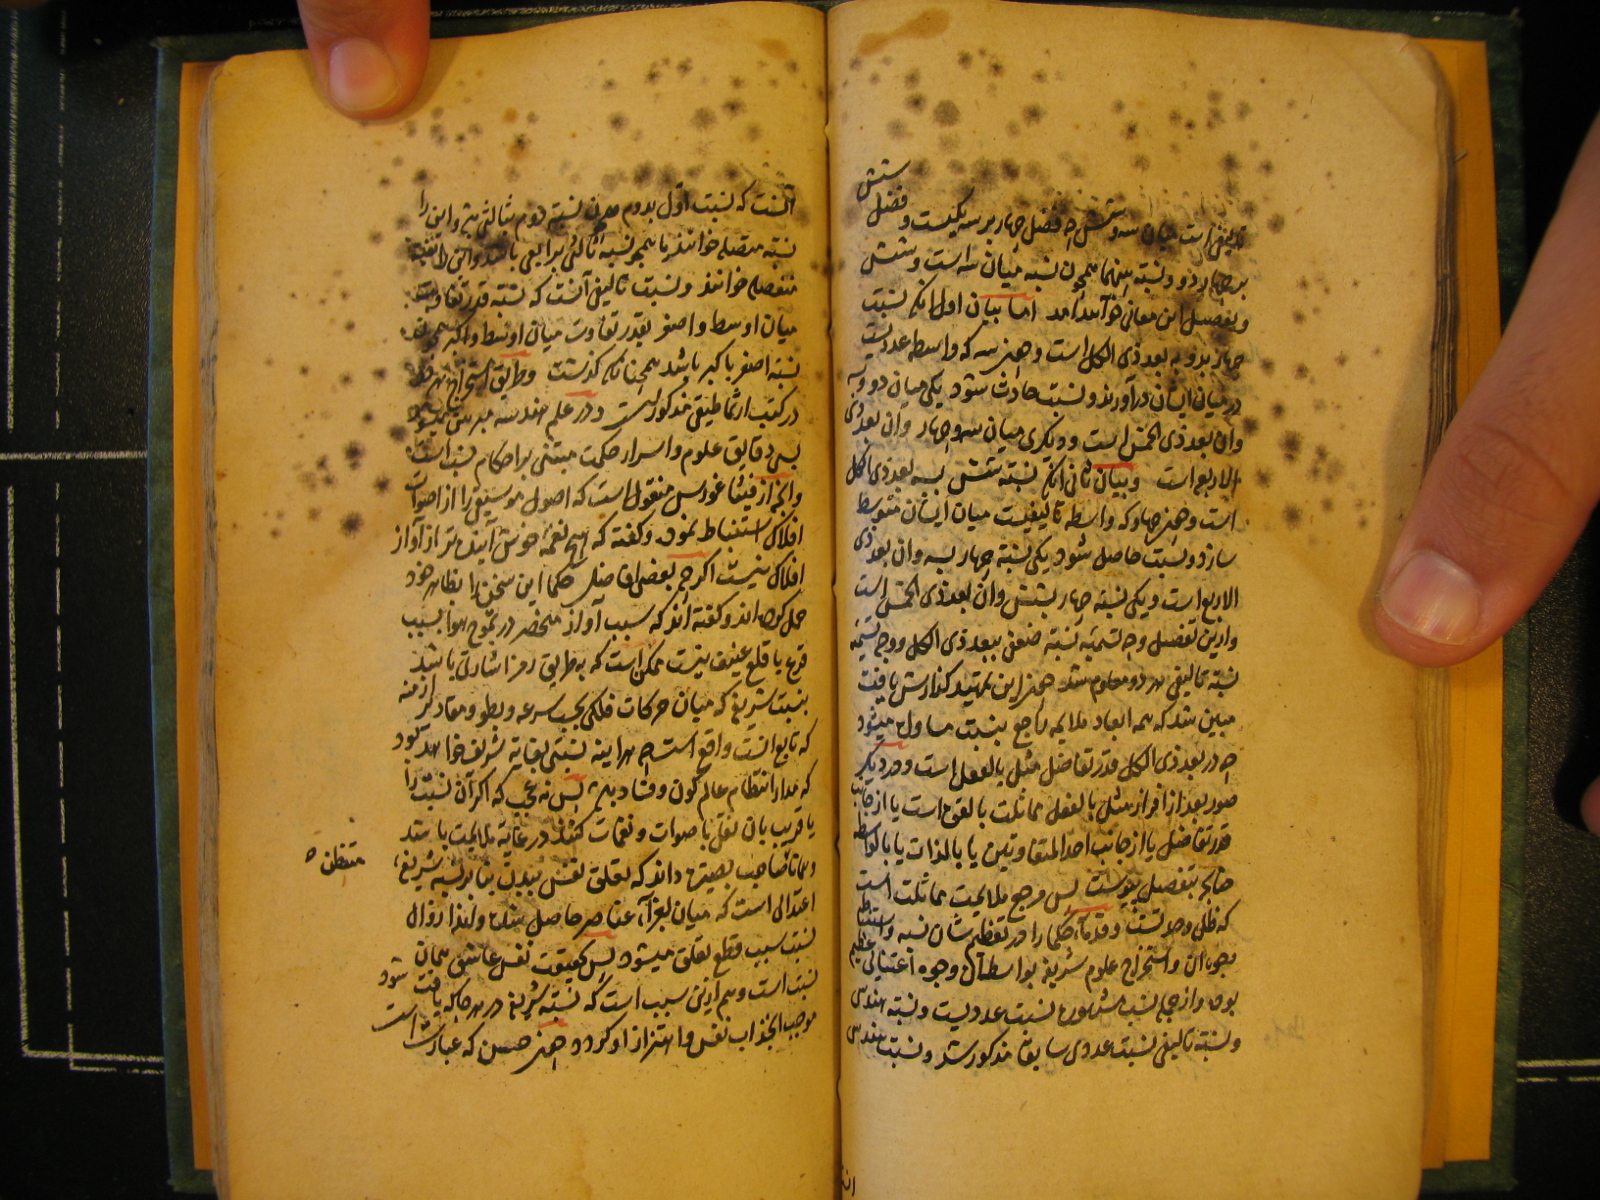 تألیفی است میان سه و شش چه فضل چهار بر سه یکیست و فضل شش
بر چهار دو و نسبة بینهما همچون نسبة میان سه است و شش
و تفصیل این معانی خواهد آمد اما بیان اول آنکه نسبت
چهار بدو به بعد ذی الکل است و چون سه که واسطه عددیست
در میان ایشان در آورند دو نسبت حادث شود یکی میان دو و سه
وان بعد ذی الخمس است و دیگری میان سه و چهار وان بعد ذی
الاربع است وبیان ثانی آنکه نسبة شش بسه بعد ذی الکل
است و چون چهار که واسطه تالیفیست میان ایشان متوسط
سازد دو نسبت حاصل شود یکی نسبة چهار بسه وان بعد ذی
الاربع است و یکی نسبة چهار بشش وان بعد ذی الخمس است
وازین تفصیل وجه تسمیه نسبة ضعف ببعد ذی الکل و وجه تسمیه
نسبة تالیفی هر دو معلوم شد چون این تمهید گذارش یافت
مبین شد که همه ابعاد ملایمه راجع بنسبت مساوات میشود
چه در بعد ذی الکل قدر تفاضل مثل بالفعل است و در دیگر
صور بعد از افراز مثل بالفعل مماثلت بالقوه است یا از جانب
قدر تفاضل یا از جانب احد المتفاوتین یا بالذات یا بالواسطه
چنانچه بتفصیل پیوست پس مرجع ملایمت مماثلت است
که ظل وحدتست و قدماء حکما را در تعظیم شان نسبة و استنباط
وجوه آن و استخراج علوم شریفه بواسطه آن وجوه اعتنائی عظیم
بوده و از جمله نسب مشهوره نسبت عددیست و نسبة هندسی
و نسبة تالیفی نسبت عددی سابقا مذکور شد و نسبت هندسی
آنست که نسبت اول بدوم همچون نسبة دوم بثالث باشد و این را
نسبة متصله خوانند یا همچو نسبة ثالث برابع باشد و این را نسبة
منفصله خوانند و نسبت تالیفی آنست که نسبة قدر تفاوت
میان اوسط و اصغر بقدر تفاوت میان اوسط و اکبر همچو
نسبة اصغر باکبر باشد همچنانکه گذشت و طریق استخراج هر یک
در کتب ارثماطیقی مذکور است و در علم هندسه مبرهن میشود
بس دقایق علوم و اسرار حکمت مبتنی بر احکام نسب است
و انچه از فیثاغورس منقول است که اصول موسیقی را از اصوات
افلاک استنباط نموده و گفته که هیچ نغمه خوش آینده تر از آواز
افلاک نیست اگرچه بعضی افاضل حکما این سخن را بظاهر خود
حمل کرده اند و گفته اند که سبب آواز منحصر در تموج هوا بسبب
قرع یا قلع عنیف نیست ممکن است که بطریق رمز اشارتی باشد
بنسبت شریفه که میان حرکات فلکی بحسب سرعه و بطو و مقادیر ازمنه
که تابع آنست واقع است چه هر اینه نسبتی بغایة شریف خواهد بود
که مدار انتظام عالم کون و فساد باشد پس نه عجب که اگر آن نسبت را
یا قریب بان نقل باصوات و نغمات کنند در غایة ملایمت باشد
و همانا صاحب بصیرت داند که تعلق نفس ببدن بنابر نسبة شریفه
متفطن
اعتدالی است که میان اجزاء عناصر حاصل شده و لهذا زوال
نسبت سبب قطع تعلق میشود پس بحقیقت نفس عاشق همان
نسبت است و هم ازین سبب است که نسبة شریفه در هر جا که یافت شود
موجب انجذاب نفس و اهتزاز او گردد چون حسن که عبارت است